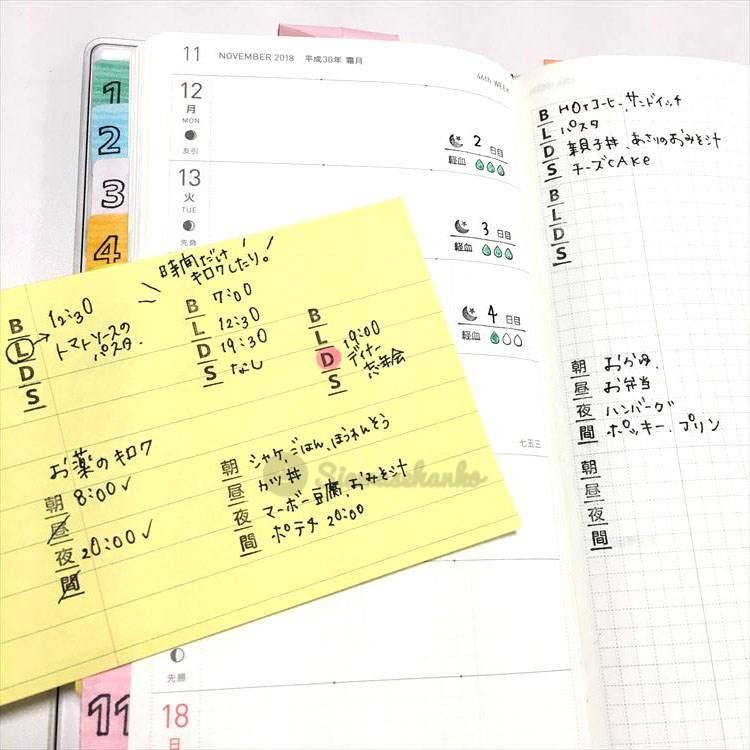 1
2
3
4
11
11 NOVEMBER 2018 平成30年 霜月
46th WEEK
12
月
MON
友引
2 日目
経血
13
火
TUE
先負
3 日目
経血
4 日目
経血
七五三
先勝
18
日
時間だけ
キロクしたり。
B 12:30
L トマトソースの
パスタ.
D
S
B 7:00
L 12:30
D 19:30
S なし
B
L
D 19:00
ディナー
忘年会
S
お薬のキロク
朝 8:00✓
昼
夜 20:00✓
間
朝 シャケ、ごはん、ほうれんそう
昼 カツ丼
夜 マーボー豆腐、おみそ汁
間 ポテチ 20:00
Siawasehanko
B HOTコーヒー、サンドイッチ
L パスタ
D 親子丼、あさりのおみそ汁
S チーズCAKe
B
L
D
S
朝 おかゆ.
昼 お弁当
夜 ハンバーグ
間 ポッキー、プリン
朝
昼
夜
間